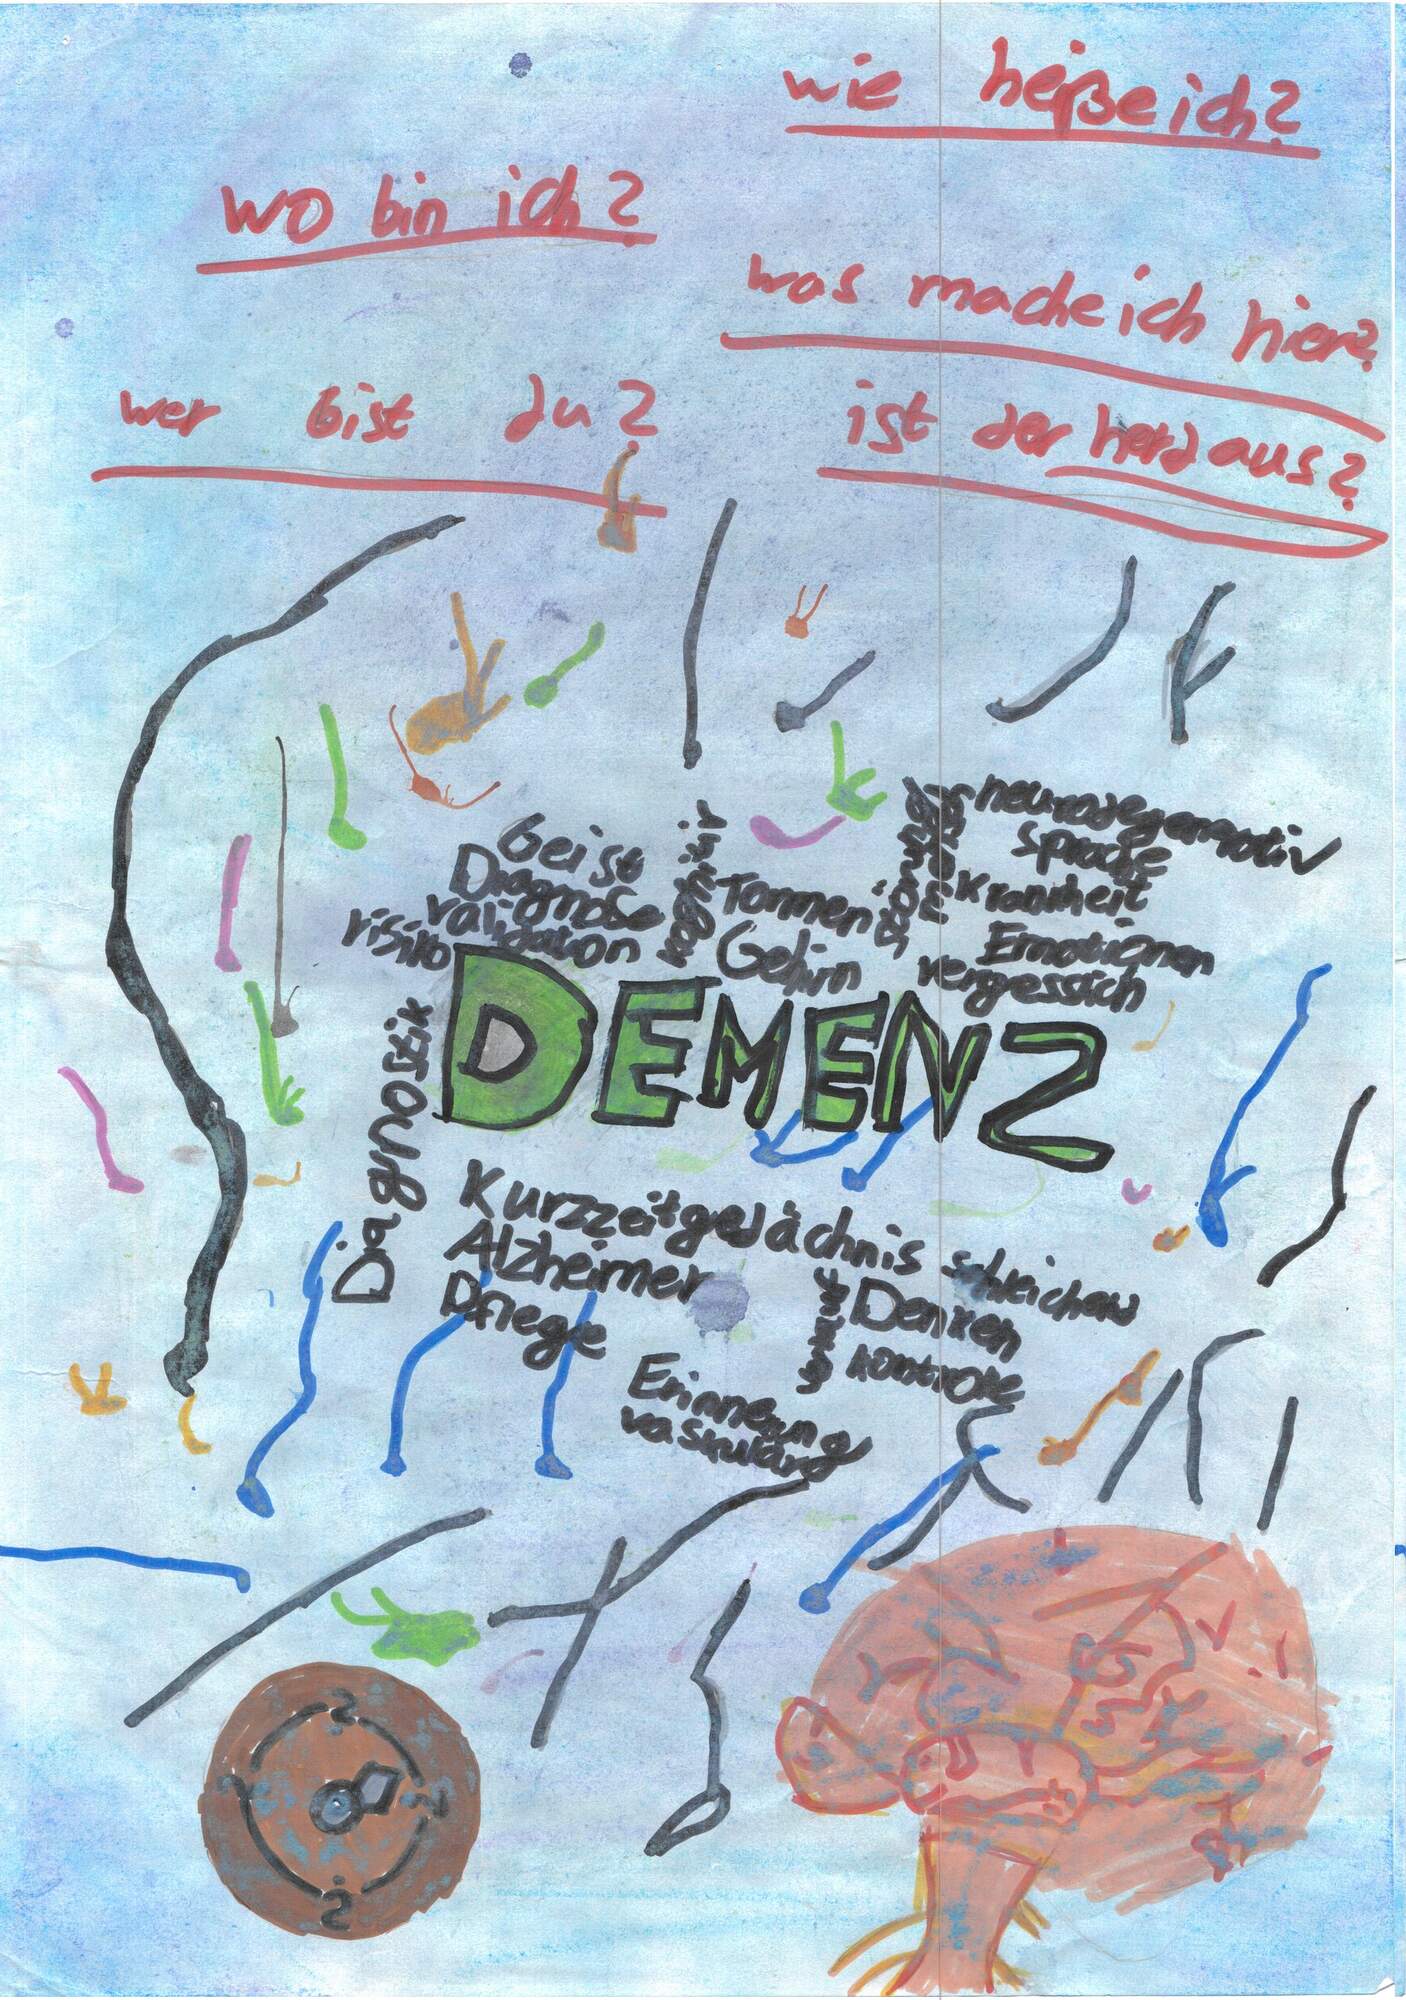 wie heiße ich?
wo bin ich?
was mache ich hier?
wer bist du?
ist der herd aus?
neurodegenerativ
Sprache
Krankheit
Emotionen
vergesslich
Geist
Diagnose
validation
risiko
Formen
Gehirn
DEMENZ
Diagnostik
Kurzzeitgedächnis
schleichend
Alzheimer
Denken
Pflege
kontrolle
Erinnerung
vaskulär